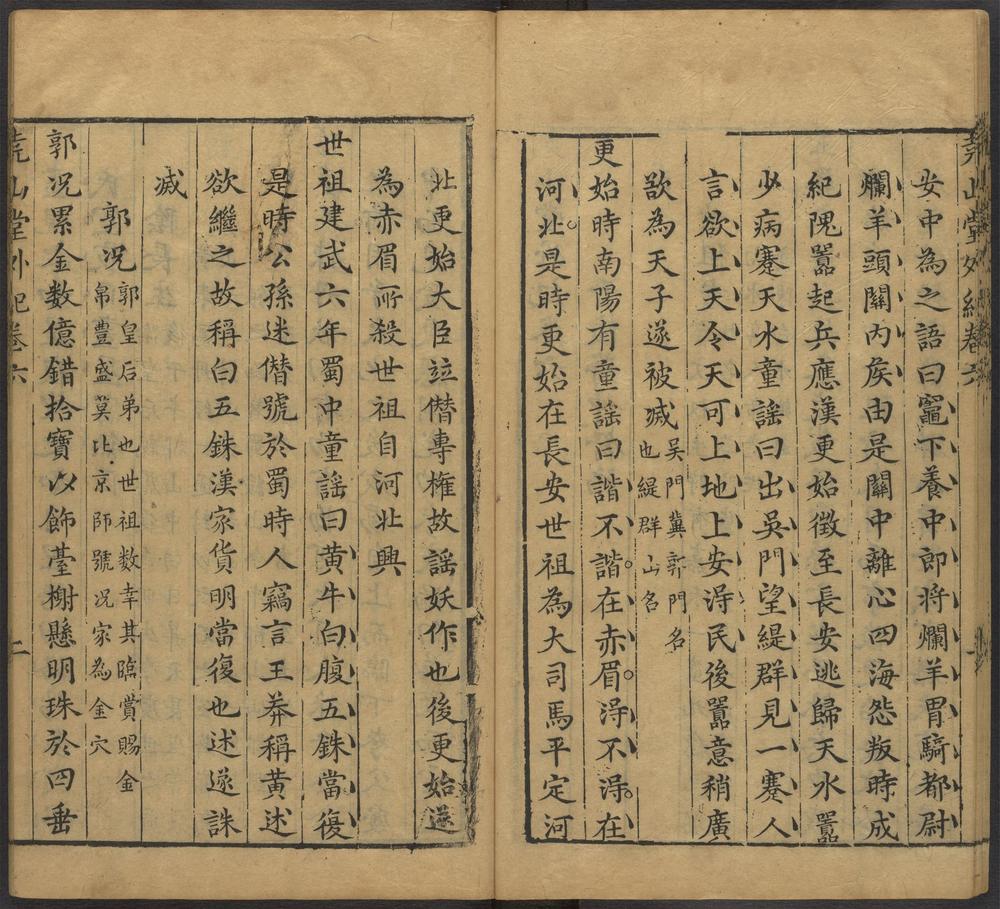 堯山堂外紀卷六
安中為之語曰竈下養中郎將爛羊胃騎都尉
爛羊頭關內侯由是關中離心四海怨叛時成
紀隗囂起兵應漢更始徵至長安逃歸天水囂
少病蹇天水童謠曰出吳門望緹群見一蹇人
言欲上天令天可上地上安淂民後囂意稍廣
欲為天子遂被滅吳門冀郭門名
也緹群山名
更始時南陽有童謠曰諧不諧在赤眉淂不淂在
河北是時更始在長安世祖為大司馬平定河
北更始大臣竝僣專權故謠妖作也後更始遂
為赤眉所殺世祖自河北興
世祖建武六年蜀中童謠曰黃牛白腹五銖當復
是時公孫述僣號於蜀時人竊言王莽稱黃述
欲繼之故稱白五銖漢家貨明當復也述遂誅
滅
郭況郭皇后弟也世祖数幸其臨賞賜金
帛豊盛莫比京師號況家為金穴
郭況累金数億錯拾寶以飾臺榭懸明珠於四垂
堯山堂外紀卷六
二